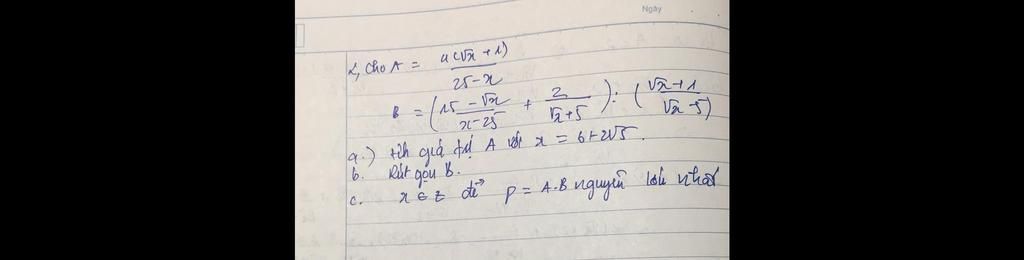 Ngày
2, Cho A = 4(√x + 1) / 25 - x
B = (15 - √x / x - 25 + 2 / √x + 5) : (√x + 1 / √x - 5)
a.) tính giá trị A với x = 6 + 2√5.
b. Rút gọn B.
c. x ∈ Z để P = A.B nguyên lớn nhất